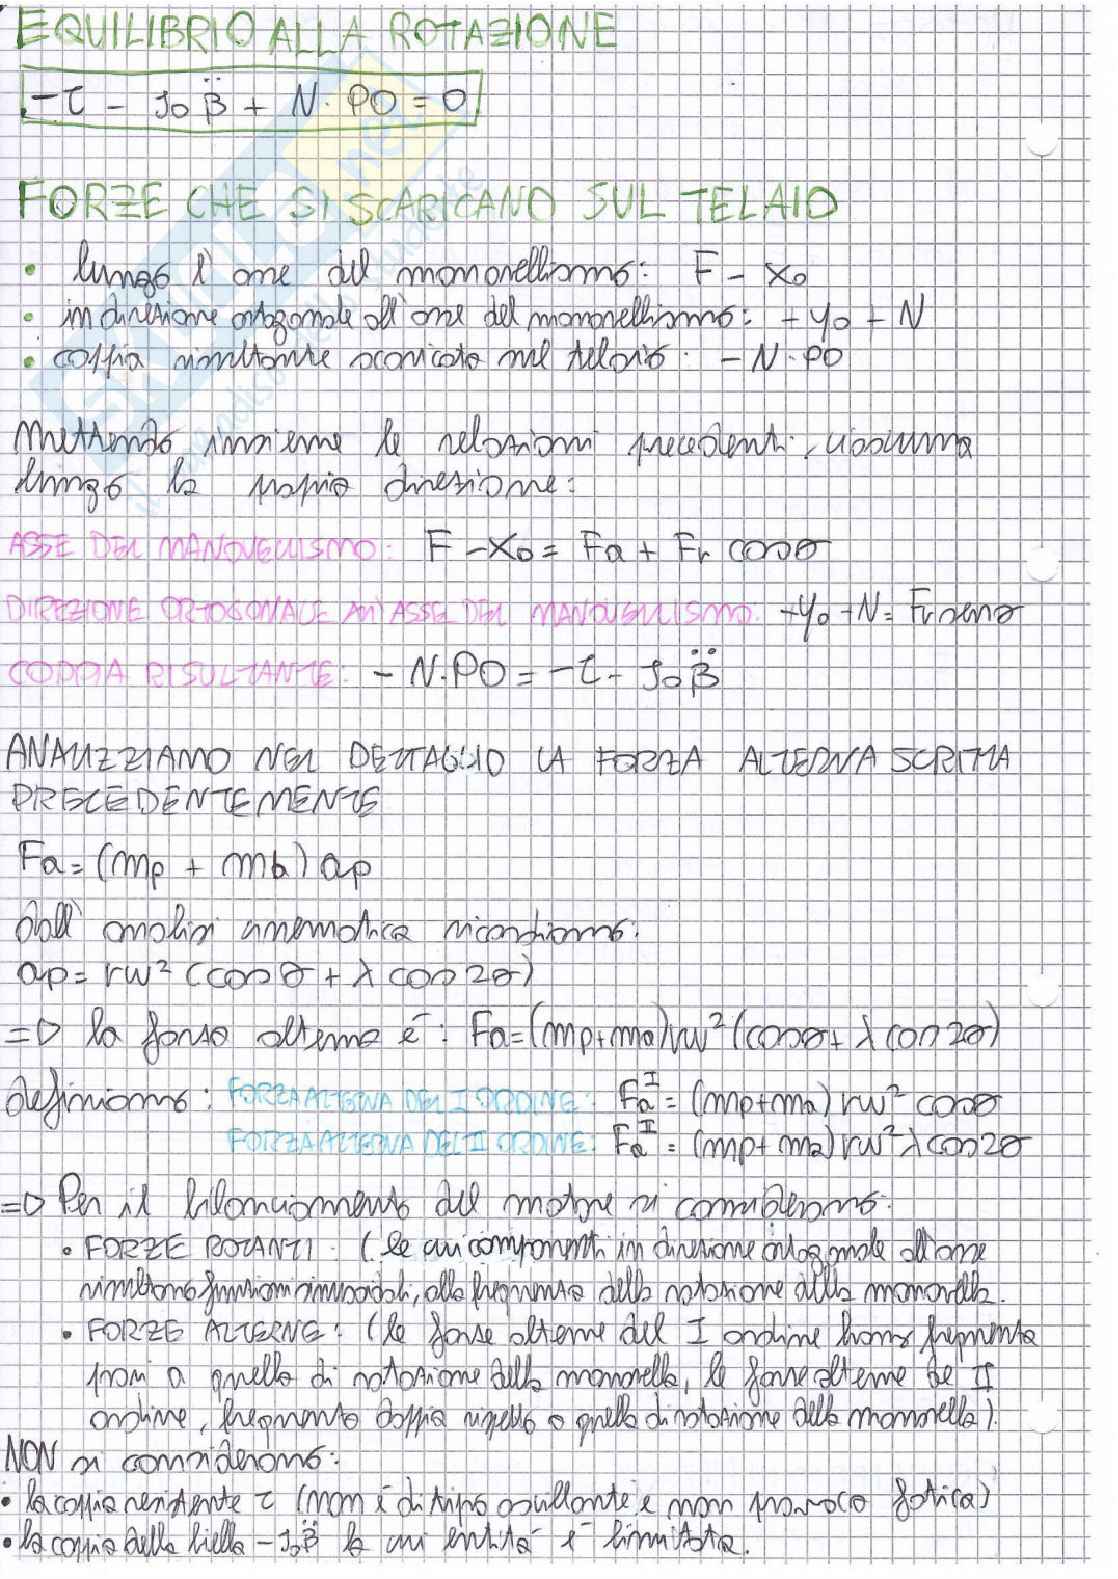 EQUILIBRIO ALLA ROTAZIONE
-τ - J₀β̈ + N·PO = 0
FORZE CHE SI SCARICANO SUL TELAIO
• lungo l'asse del manovellismo: F - X₀
• in direzione ortogonale all'asse del manovellismo: -Y₀ - N
• coppia risultante scaricata sul telaio: -N·PO
Mettendo insieme le relazioni precedenti, ciascuna
lungo la propria direzione:
ASSE DEL MANOVELLISMO: F - X₀ = Fa + Fr cosθ
DIREZIONE ORTOGONALE ALL'ASSE DEL MANOVELLISMO: -Y₀ - N = Fr senθ
COPPIA RISULTANTE: -N·PO = -τ - J₀β̈
ANALIZZIAMO NEL DETTAGLIO LA FORZA ALTERNA SCRITTA
PRECEDENTEMENTE
Fa = (mp + mb) ap
Dall'analisi cinematica ricordiamo:
ap = rω² (cosθ + λ cos2θ)
=> la forza alterna è: Fa = (mp+ma)rω² (cosθ + λ cos2θ)
definiamo: FORZA ALTERNA DEL I ORDINE: Fa^I = (mp+ma) rω² cosθ
FORZA ALTERNA DEL II ORDINE: Fa^II = (mp+ma) rω² λ cos2θ
=> Per il bilanciamento del motore si considerano:
• FORZE ROTANTI: (le cui componenti in direzione ortogonale all'asse
risultano funzioni sinusoidali, alla frequenza della rotazione della manovella.
• FORZE ALTERNE: (le forze alterne del I ordine hanno frequenza
pari a quella di rotazione della manovella, le forze alterne de II
ordine, frequenza doppia rispetto a quella di rotazione della manovella).
NON si considerano:
• la coppia resistente τ (non è di tipo oscillante e non provoca fatica)
• la coppia della biella -J₀β̈ la cui entità è limitata.